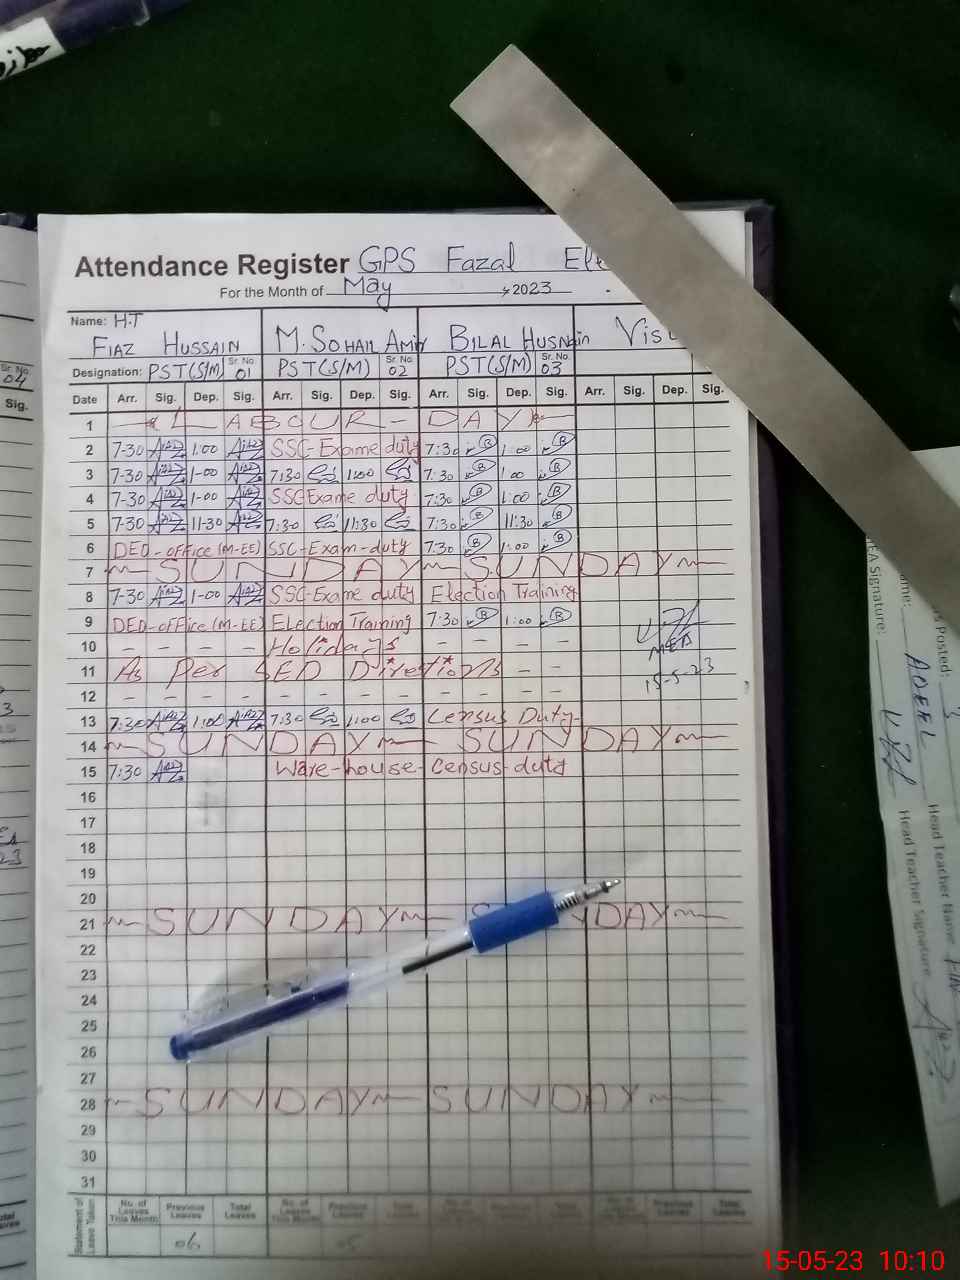 Attendance Register GPS Fazal
For the Month of May 2023
Name: H.T
FIAZ HUSSAIN M. SOHAIL Amir BILAL HUSNain
Designation: PST(S/M) Sr. No. 01 PST(S/M) Sr. No. 02 PST(S/M) Sr. No. 03
Date Arr. Sig. Dep. Sig. Arr. Sig. Dep. Sig. Arr. Sig. Dep. Sig. Arr. Sig. Dep. Sig.
1 LABOUR - DAY
2 7-30 1:00 SSC-Exame duty 7:30 1:00
3 7-30 1-00 7:30 1:00 7:30 1:00
4 7-30 1-00 SSC Exame duty 7:30 1:00
5 7-30 11-30 7:30 11:30 7:30 11:30
6 DEO-office (M-EE) SSC-Exam-duty 7:30 1:00
7 SUNDAY SUNDAY
8 7-30 1-00 SSC-Exame duty Election Training
9 DEO-office (M-EE) Election Training 7:30 1:00
10 - - - - Holidays - - - -
11 As Per SED Directions - -
MEA
15-5-23
12 - - - - - - - - - - - -
13 7:30 1:00 7:30 1:00 Census Duty-
14 SUNDAY SUNDAY
15 7:30 Ware-house- Census-duty
16
17
18
19
20
21 SUNDAY DAY
22
23
24
25
26
27
28 SUNDAY SUNDAY
29
30
31
Statement of Leave Taken
No. of Leaves This Month Previous Leaves Total Leaves No. of Leaves This Month Previous Leaves Total Leaves
06 05
Sr. No.
04
Sig.
Signature:
Posted:
ADEEL
Head Teacher Name
Head Teacher Signature
15-05-23 10:10